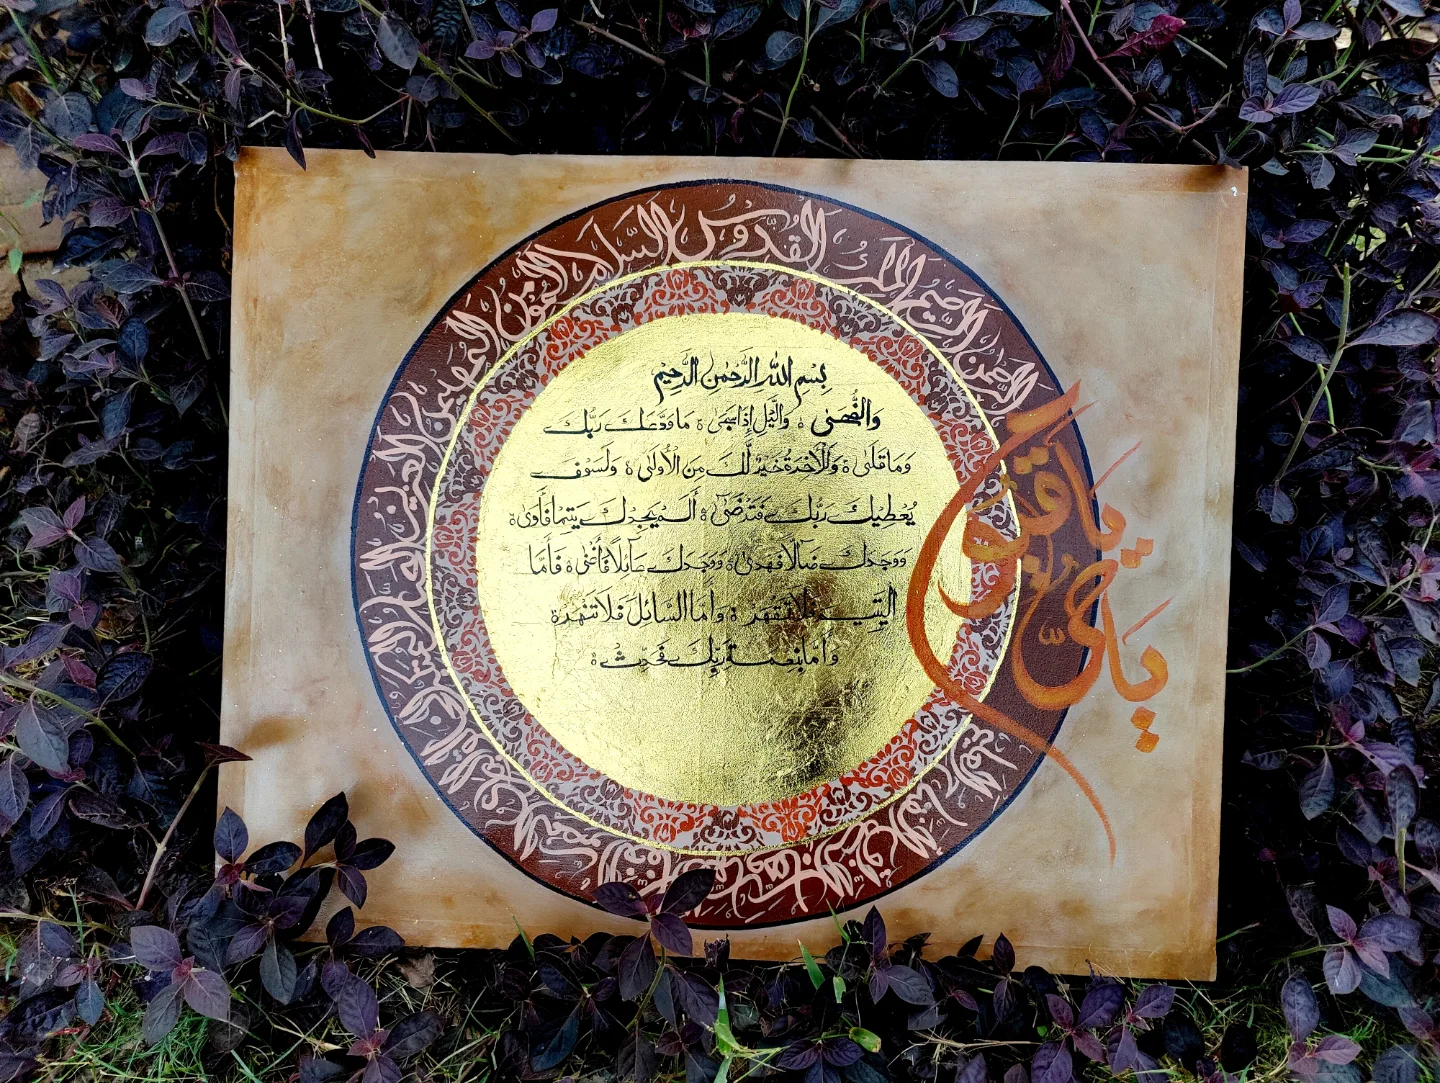 بِسْمِ اللهِ الرَّحْمٰنِ الرَّحِيْمِ
وَالضُّحٰى ۝ وَاللَّيْلِ إِذَا سَجٰى ۝ مَا وَدَّعَكَ رَبُّكَ
وَمَا قَلٰى ۝ وَلَلْاٰخِرَةُ خَيْرٌ لَّكَ مِنَ الْأُولٰى ۝ وَلَسَوْفَ
يُعْطِيكَ رَبُّكَ فَتَرْضٰى ۝ أَلَمْ يَجِدْكَ يَتِيمًا فَآوٰى ۝
وَوَجَدَكَ ضَآلًّا فَهَدٰى ۝ وَوَجَدَكَ عَآئِلًا فَأَغْنٰى ۝ فَأَمَّا
الْيَتِيمَ فَلَا تَقْهَرْ ۝ وَأَمَّا السَّائِلَ فَلَا تَنْهَرْ ۝
وَأَمَّا بِنِعْمَةِ رَبِّكَ فَحَدِّثْ ۝
الرَّحْمٰنُ الرَّحِيمُ الْمَلِكُ الْقُدُّوسُ السَّلَامُ الْمُؤْمِنُ الْمُهَيْمِنُ الْعَزِيزُ
يَا حَيُّ يَا قَيُّومُ